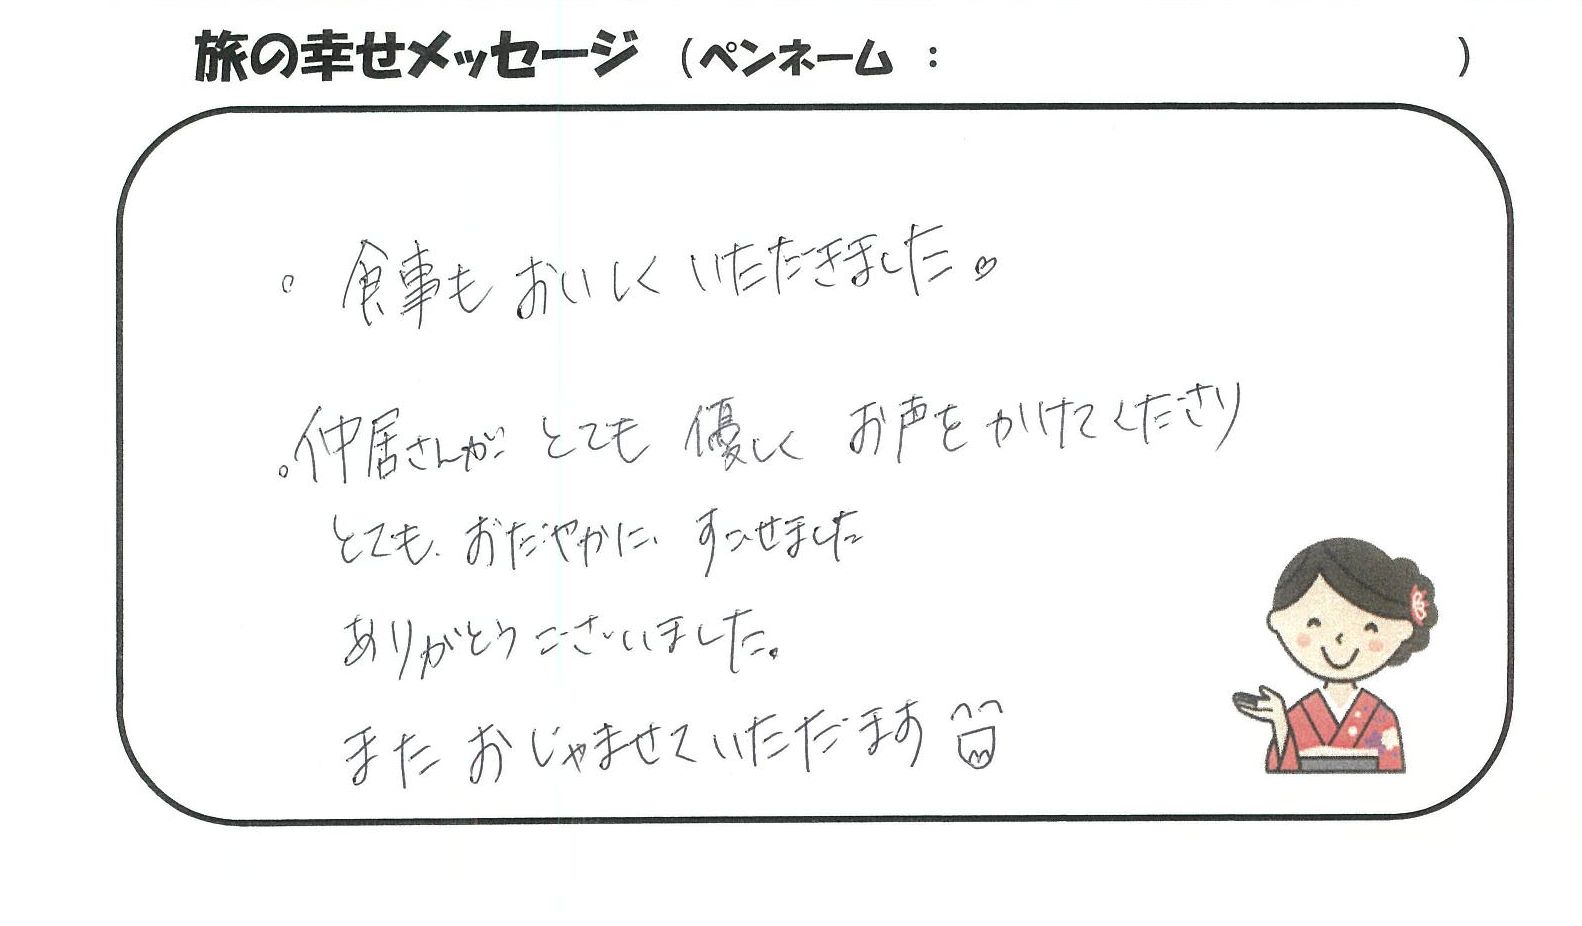 旅の幸せメッセージ（ペンネーム：　　　）
。食事も おいしく いただきました♡
。仲居さんが とても 優しく お声を かけてくださり
とても、おだやかに、すごせました
ありがとうございました。
また おじゃませていただだます